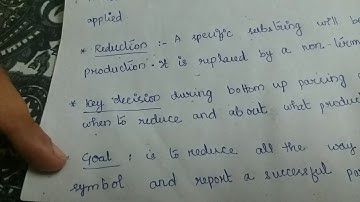 applied
* Reduction :- A specific substring will be
production. it is replaced by a non-term
* Key decision during bottom up parsing
when to reduce and about what produc
Goal : is to reduce all the way
symbol and report a successful par